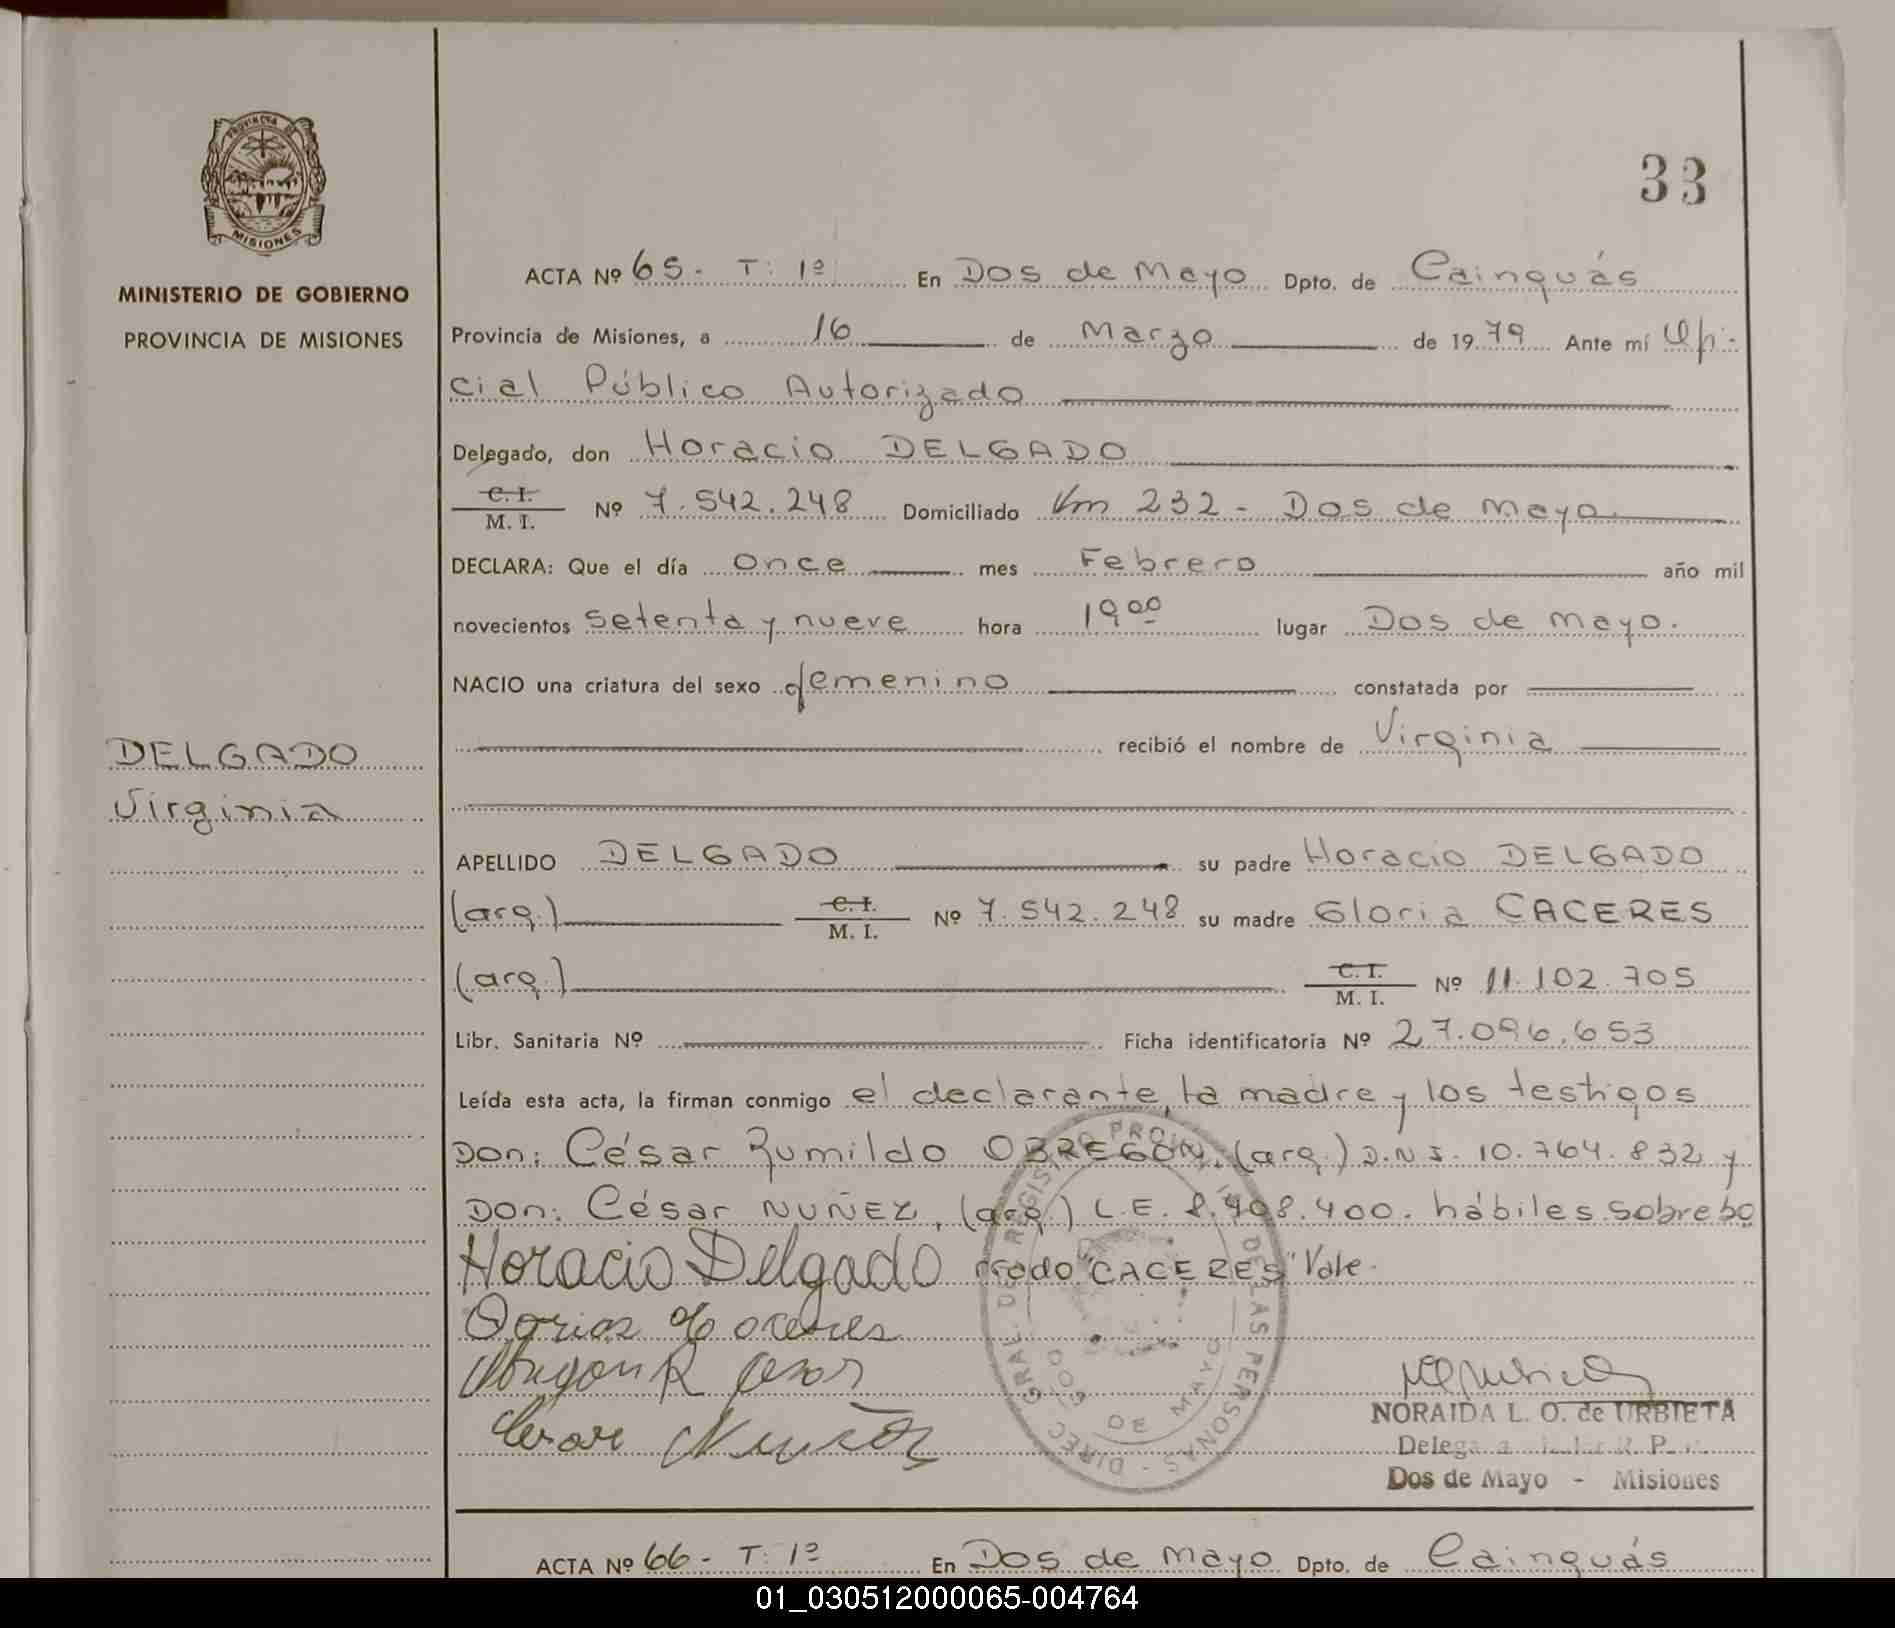 PROVINCIA DE
MISIONES
MINISTERIO DE GOBIERNO
PROVINCIA DE MISIONES
33
ACTA Nº 65.- T: 1º En Dos de Mayo Dpto. de Cainguás
Provincia de Misiones, a 16 de Marzo de 1979 Ante mí Ofi-
cial Público Autorizado
Delegado, don Horacio DELGADO
C. I.
M. I. Nº 7.542.248 Domiciliado Km 232 - Dos de Mayo.
DECLARA: Que el día once mes Febrero año mil
novecientos setenta y nueve hora 19 00 lugar Dos de Mayo.
NACIO una criatura del sexo femenino constatada por
recibió el nombre de Virginia
DELGADO
Virginia
APELLIDO DELGADO su padre Horacio DELGADO
(arg.) C. I.
M. I. Nº 7.542.248 su madre Gloria CACERES
(arg.) C. I.
M. I. Nº 11.102.705
Libr. Sanitaria Nº Ficha identificatoria Nº 27.096.653
Leída esta acta, la firman conmigo el declarante, la madre y los testigos
Don: César Rumildo OBREGON, (arg.) D.N.I. 10.764.832 y
Don: César NUÑEZ, (arg.) L.E. 8.408.400. hábiles. Sobrebo
rrado "CACERES" Vale.
Horacio Delgado
Caceres
Cesar
Cesar Nuñez
DIREC. GRAL. DE REGISTRO PROVINCIAL DE LAS PERSONAS -
DOS DE MAYO
NORAIDA L. O. de URBIETA
Dos de Mayo - Misiones
ACTA Nº 66.- T: 1º En Dos de Mayo Dpto. de Cainguás
01_030512000065-004764